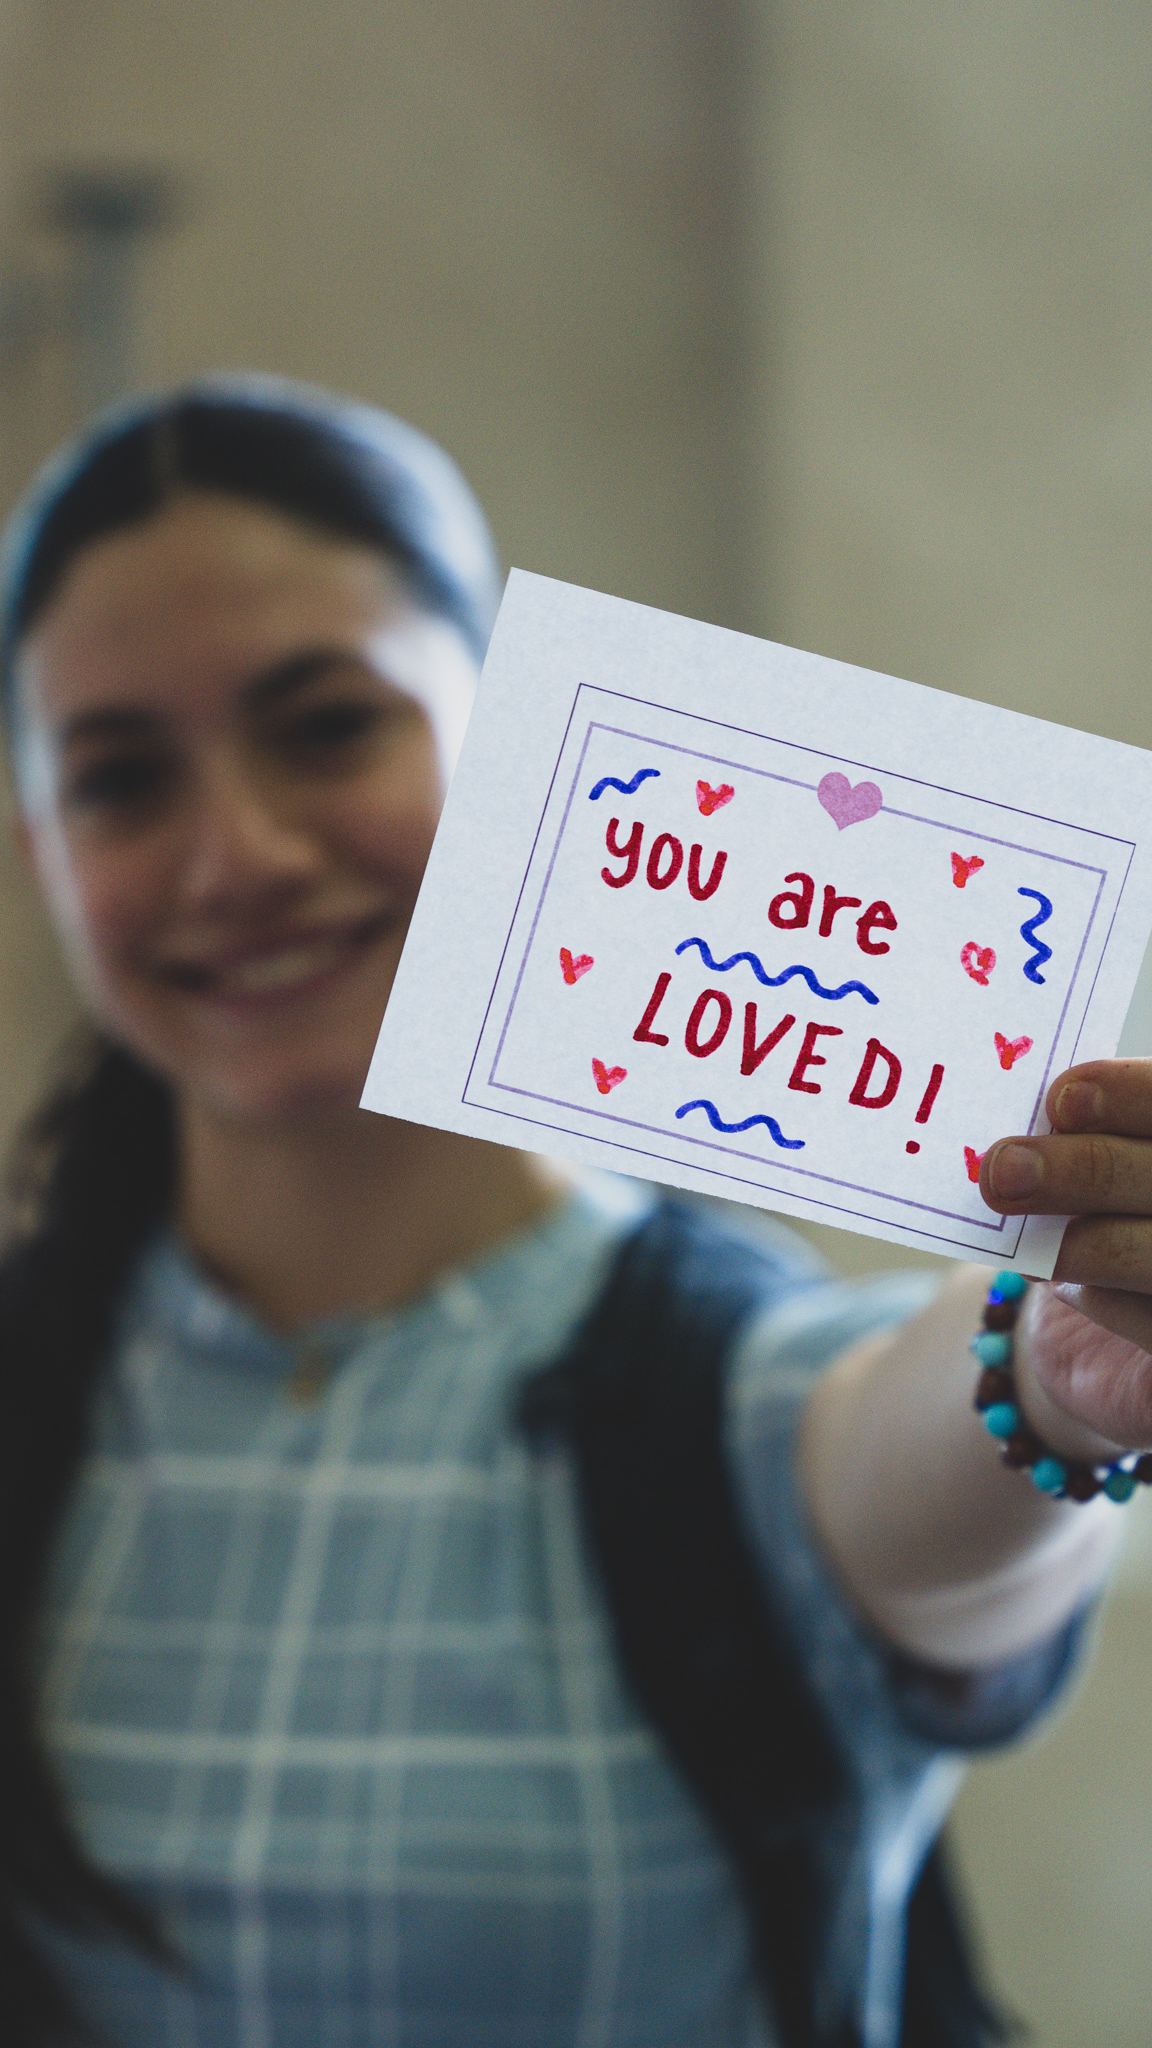 you are
LOVED!